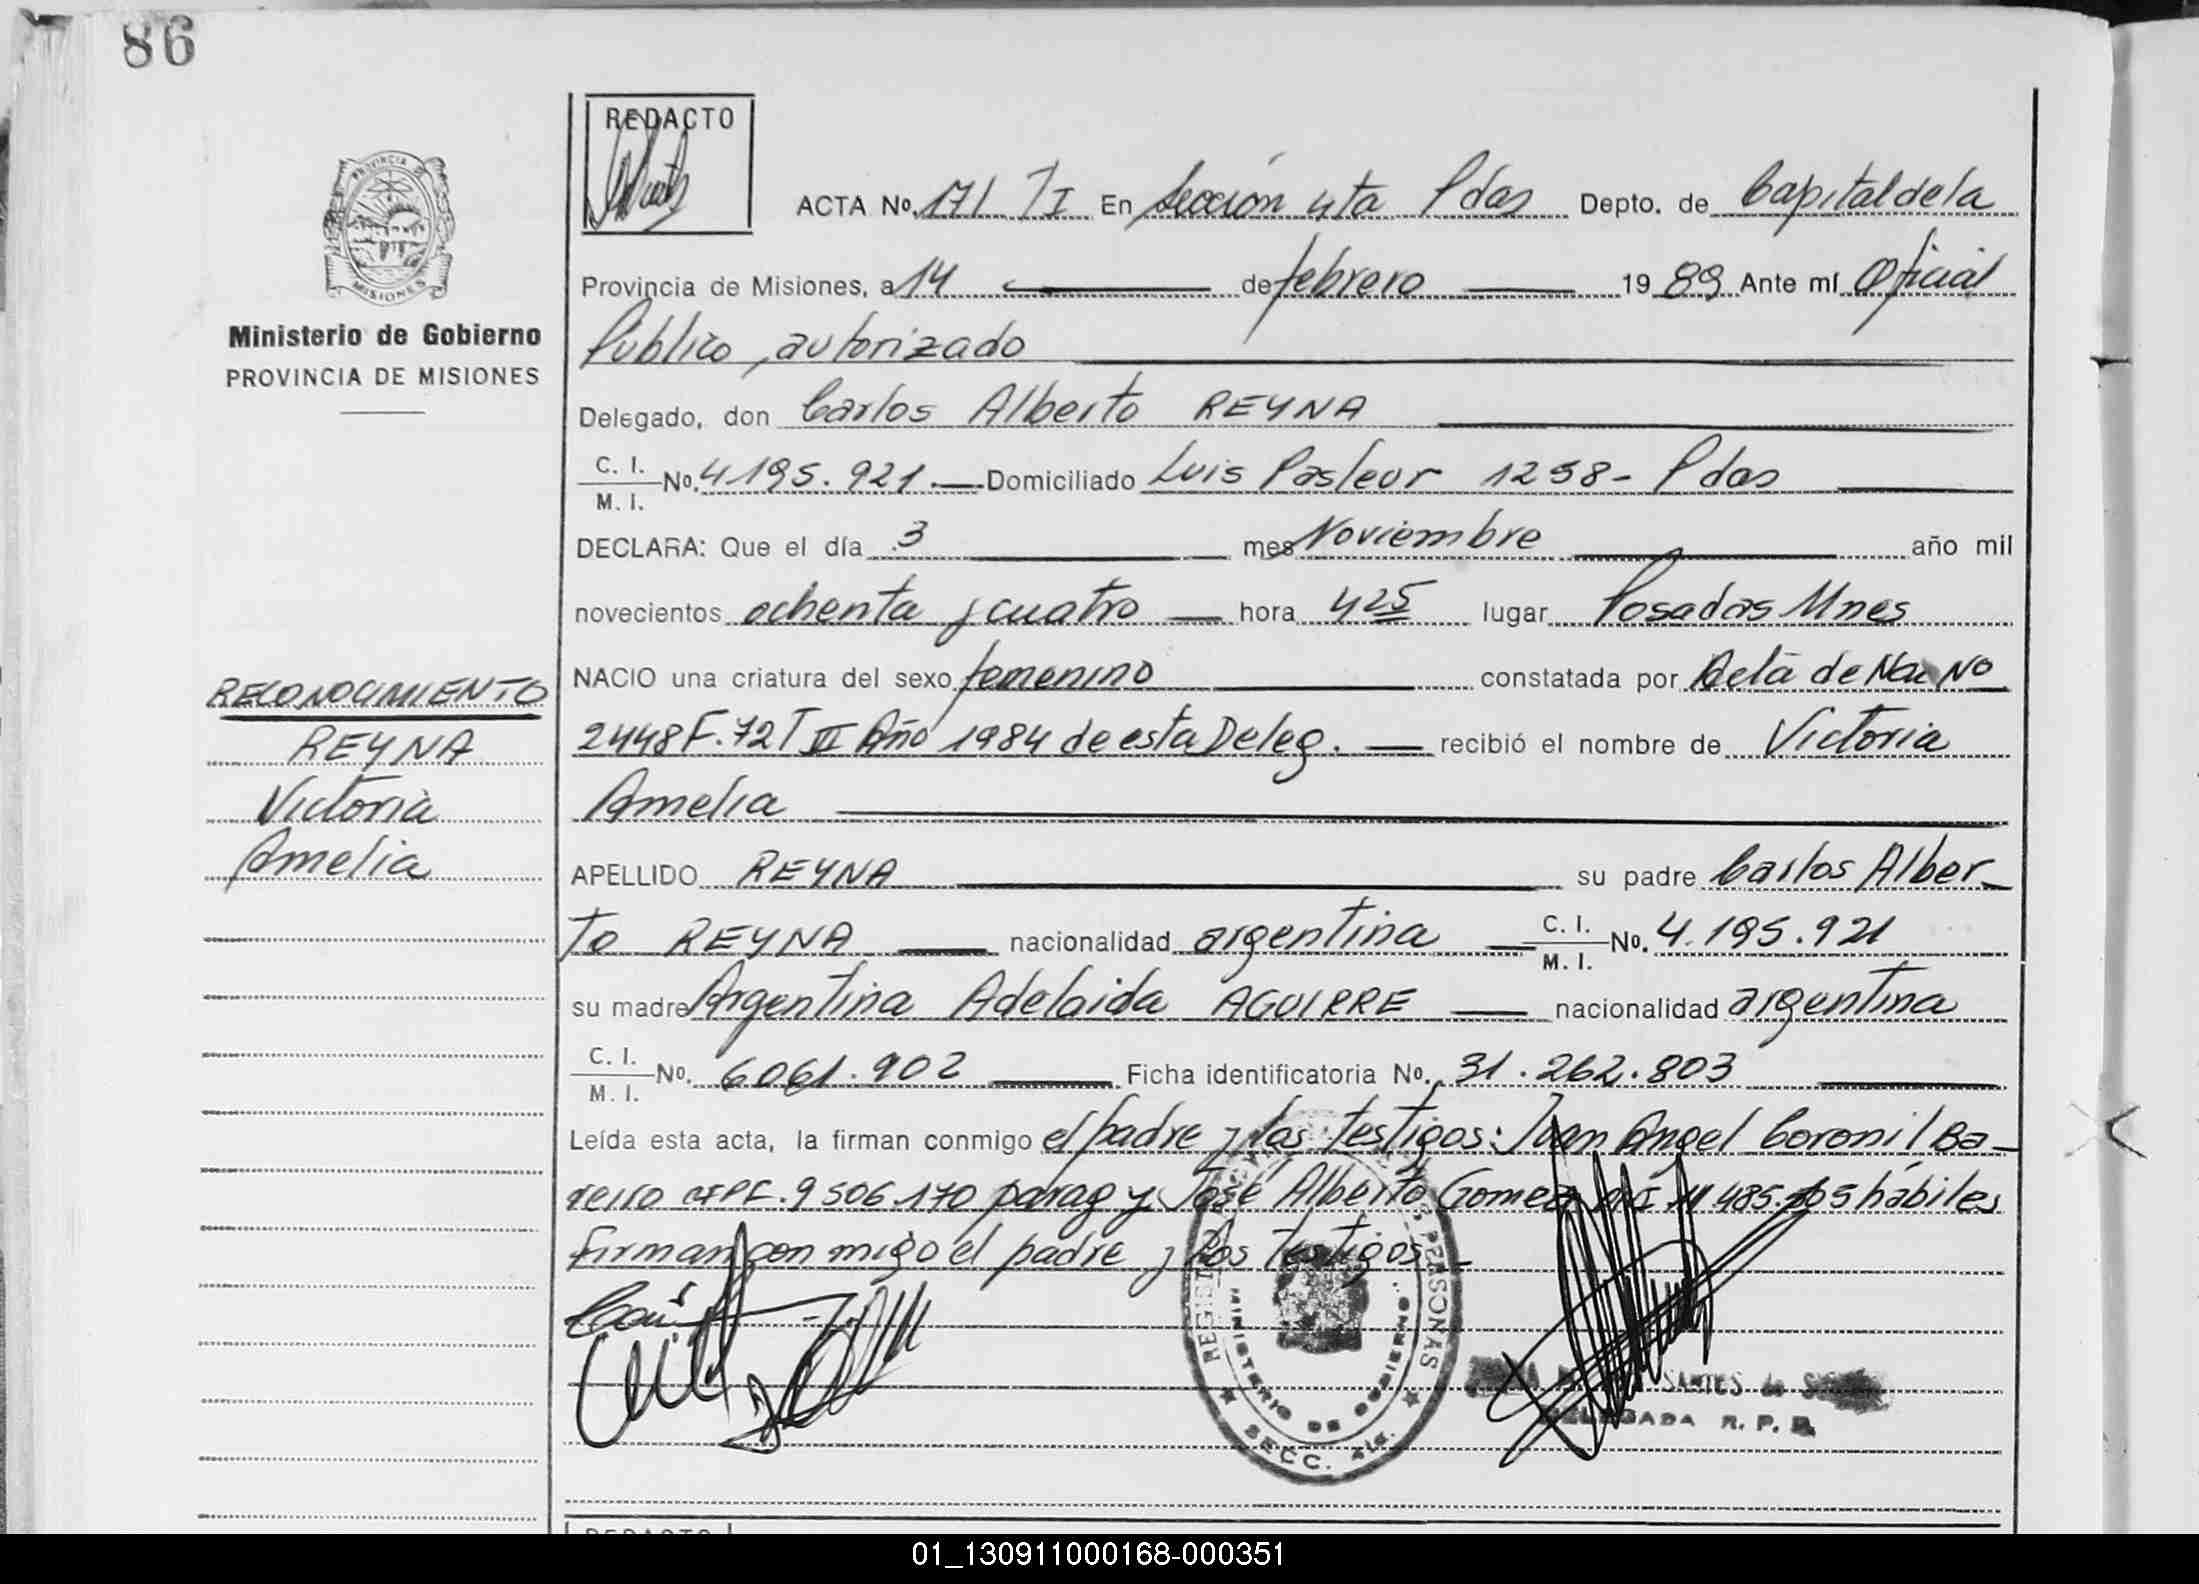 86
PROVINCIA DE
MISIONES
Ministerio de Gobierno
PROVINCIA DE MISIONES
RECONOCIMIENTO
REYNA
Victoria
Amelia
REDACTO
ACTA No. 171 TI En Sección 4ta Pdas Depto. de Capital de la
Provincia de Misiones, a 14 de febrero 19 89 Ante mí Oficial
Público, autorizado
Delegado, don Carlos Alberto REYNA
C. I. M. I. No. 4.195.921.— Domiciliado Luis Pasteur 1258- Pdas
DECLARA: Que el día 3 mes Noviembre año mil
novecientos ochenta y cuatro hora 4 25 lugar Posadas Mnes
NACIO una criatura del sexo femenino constatada por Acta de Nac No
2448 F. 72 T II Año 1984 de esta Deleg. recibió el nombre de Victoria
Amelia
APELLIDO REYNA su padre Carlos Alber-
to REYNA nacionalidad argentina C. I. M. I. No. 4.195.921
su madre Argentina Adelaida AGUIRRE nacionalidad argentina
C. I. M. I. No. 6061.902 Ficha identificatoria No. 31.262.803
Leída esta acta, la firman conmigo el padre y los testigos: Juan Angel Coronil Ba-
reiro CIPF. 9506.170 parag y José Alberto Gomez MI hábiles
firman con migo el padre y los testigos.-
REGISTRO PERSONAS
MINISTERIO DE GOBIERNO
SECC. 4ta.
SANTES de
DELEGADA R. P. P.
REDACTO
01_130911000168-000351